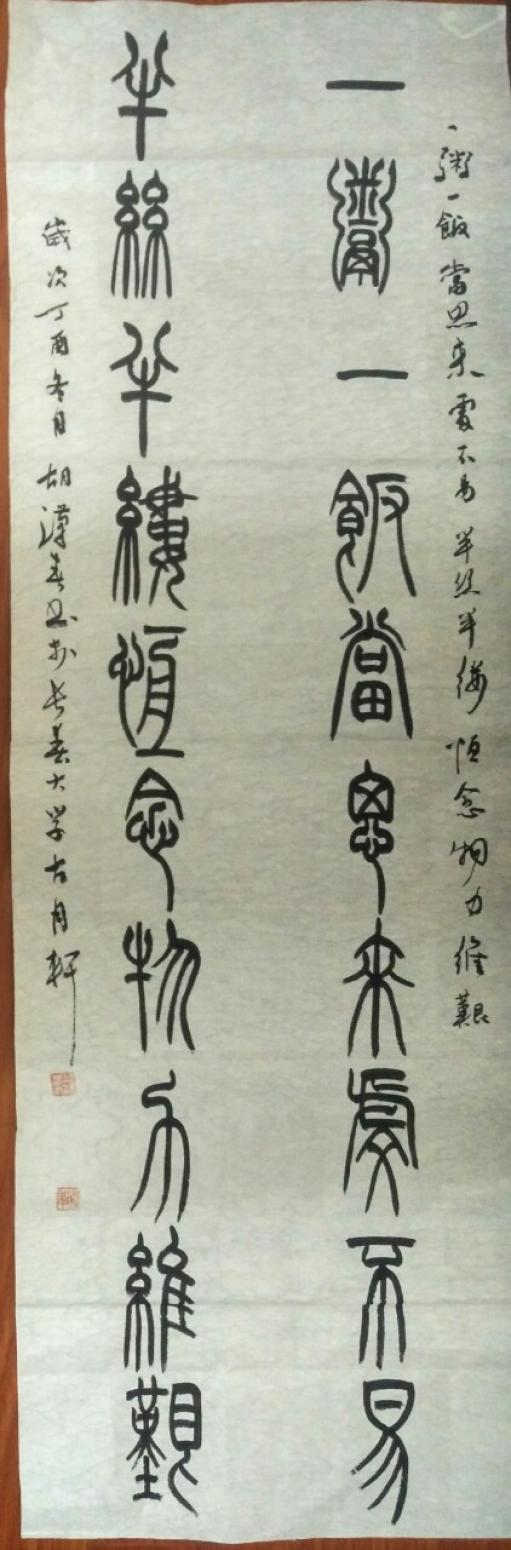 一粥一飯當思來處不易半絲半縷恒念物力維艱
一鬻一飯當思來處不易
半絲半縷恒念物力維艱
歲次丁酉冬月胡漢春書於長春大学古月軒